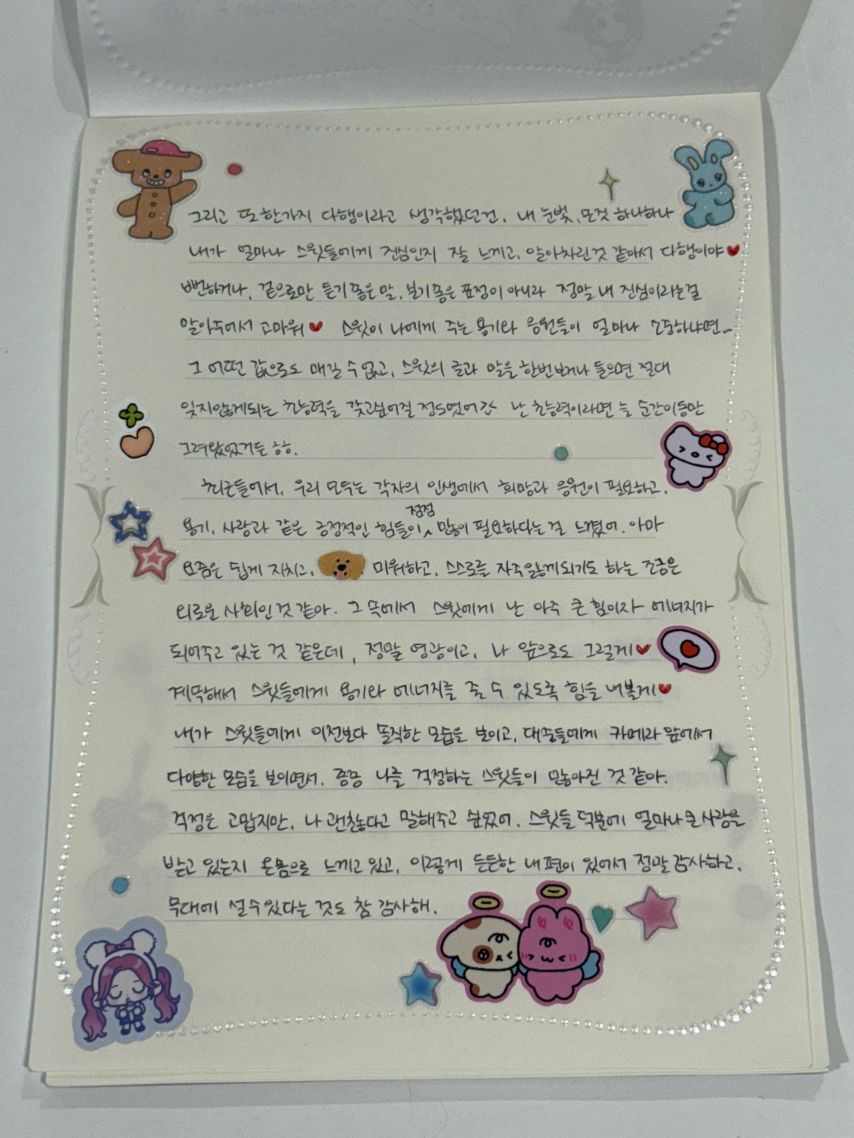 그리고 또 한가지 다행이라고 생각했던건, 내 눈빛, 몸짓 하나하나
내가 얼마나 스윗들에게 진심인지 잘 느끼고, 알아차린 것 같아서 다행이야♥
뻔하거나, 겉으로만 듣기 좋은 말, 보기 좋은 표정이 아니라 정말 내 진심이라는걸
알아주어서 고마워♥ 스윗이 나에게 주는 용기와 응원들이 얼마나 소중하냐면..
그 어떤 값으로도 매길 수 없고, 스윗의 글과 말을 한번 보거나 들으면 절대
잊지 않게되는 초능력을 갖고싶어질 정도였어 난 초능력이라면 늘 순간이동만
그려왔었거든 ㅎㅎ.
최근들어서, 우리 모두는 각자의 인생에서 희망과 응원이 필요하고,
점점
용기, 사랑과 같은 긍정적인 힘들이 많이 필요하다는 걸 느꼈어. 아마
요즘은 쉽게 지치고, 미워하고, 스스로를 자주 잃게 되기도 하는 조금은
외로운 사회인 것 같아. 그 속에서 스윗에게 난 아주 큰 힘이자 에너지가
되어주고 있는 것 같은데, 정말 영광이고, 나 앞으로도 그럴게♥
계속해서 스윗들에게 용기와 에너지를 줄 수 있도록 힘을 내볼게♥
내가 스윗들에게 이전보다 솔직한 모습을 보이고, 대중들에게 카메라 앞에서
다양한 모습을 보이면서, 종종 나를 걱정하는 스윗들이 많아진 것 같아.
걱정은 고맙지만, 나 괜찮다고 말해주고 싶었어. 스윗들 덕분에 얼마나 큰 사랑을
받고 있는지 온몸으로 느끼고 있고, 이렇게 든든한 내 편이 있어서 정말 감사하고,
무대에 설 수 있다는 것도 참 감사해.